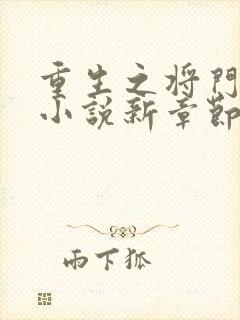 重生之将門
小説新章節
雨下狐